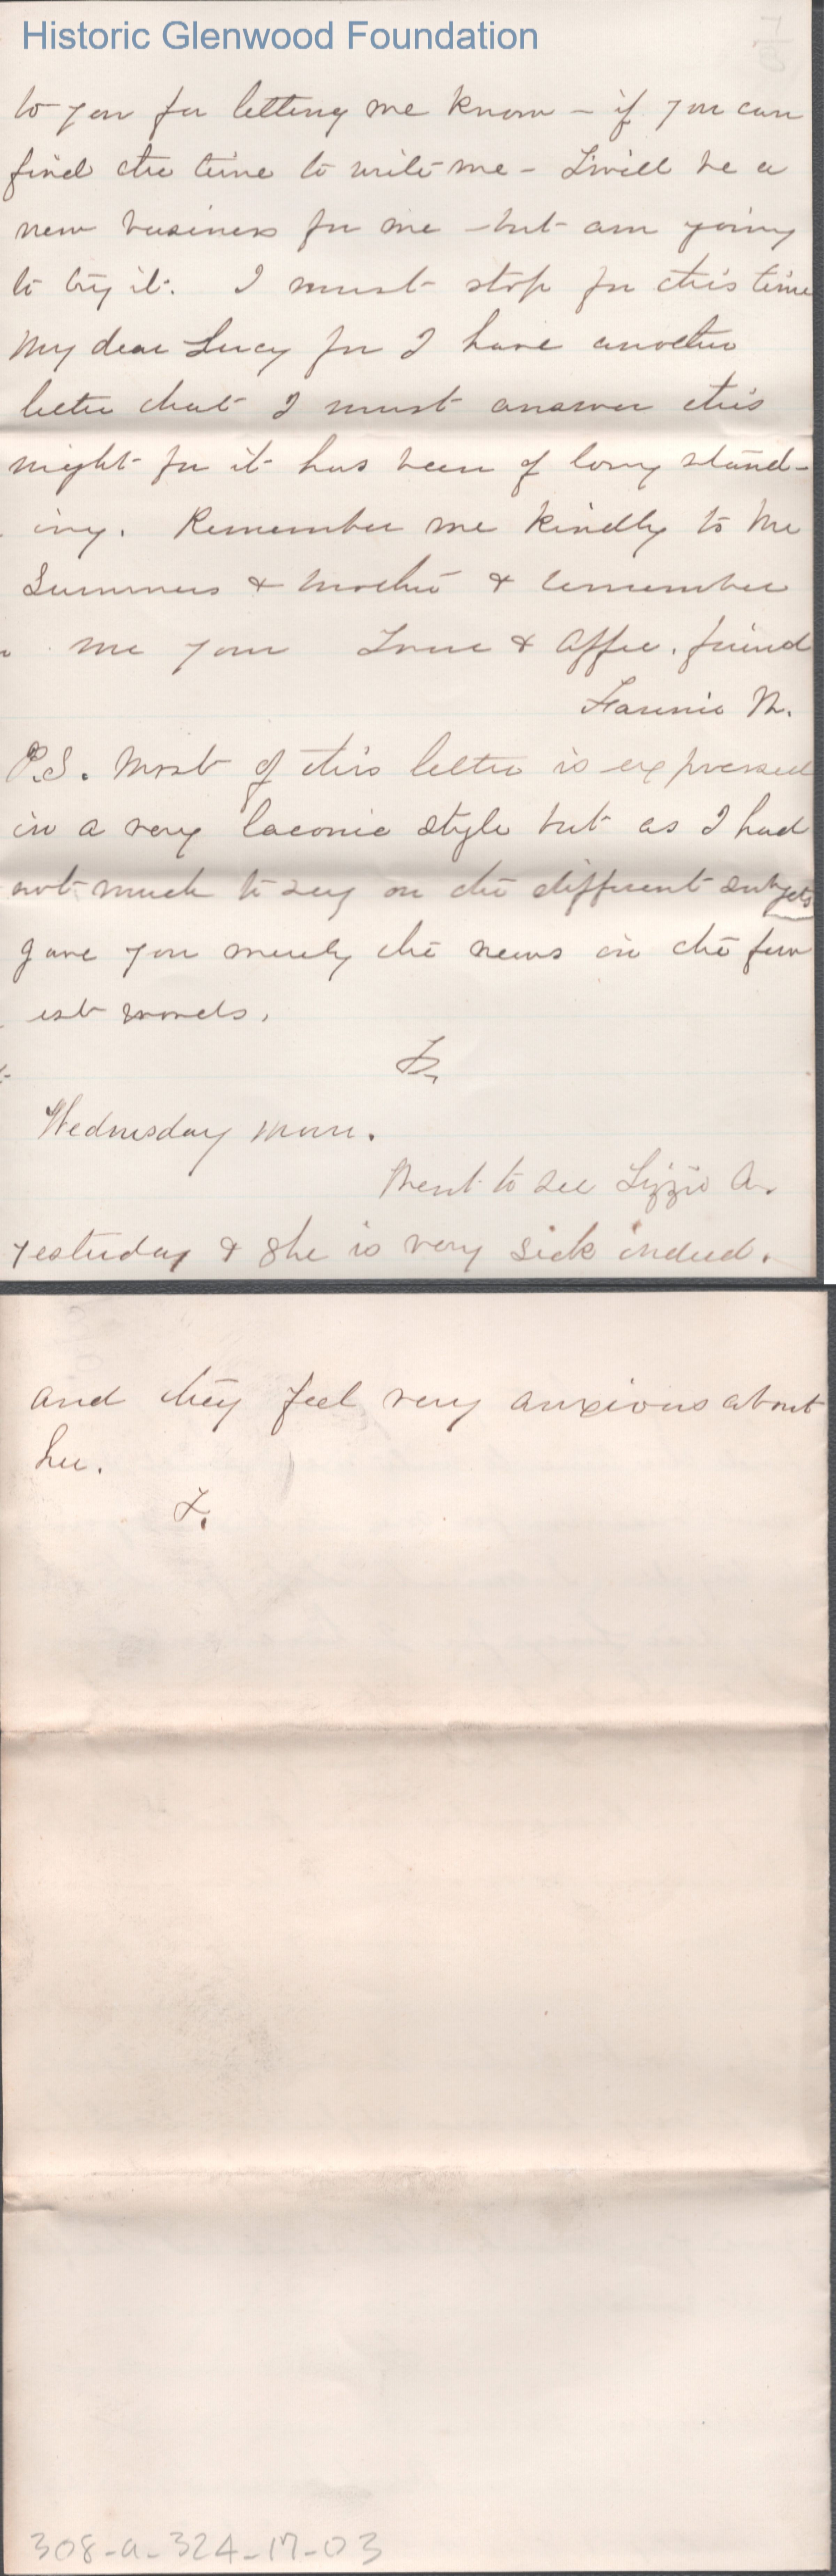 Historic Glenwood Foundation
to you for letting me know – if you can
find the time to write me – Twill be a
new business for me – but am going
to try it. I must stop for this time
My dear Lucy for I have another
letter that I must answer this
night for it has been of long stand-
ing. Remember me kindly to Mr
Summers & Mother & remember
me your True & Affec. friend
Fannie N.
P.S. Most of this letter is expressed
in a very laconic style but as I had
not much to say on the different subjets
gave you merely the news in the few
est words.
F.
Wednesday morn.
Went to see Lizzie A.
yesterday & she is very sick indeed.
and they feel very anxious about
her.
F.
308-a-324-17-03